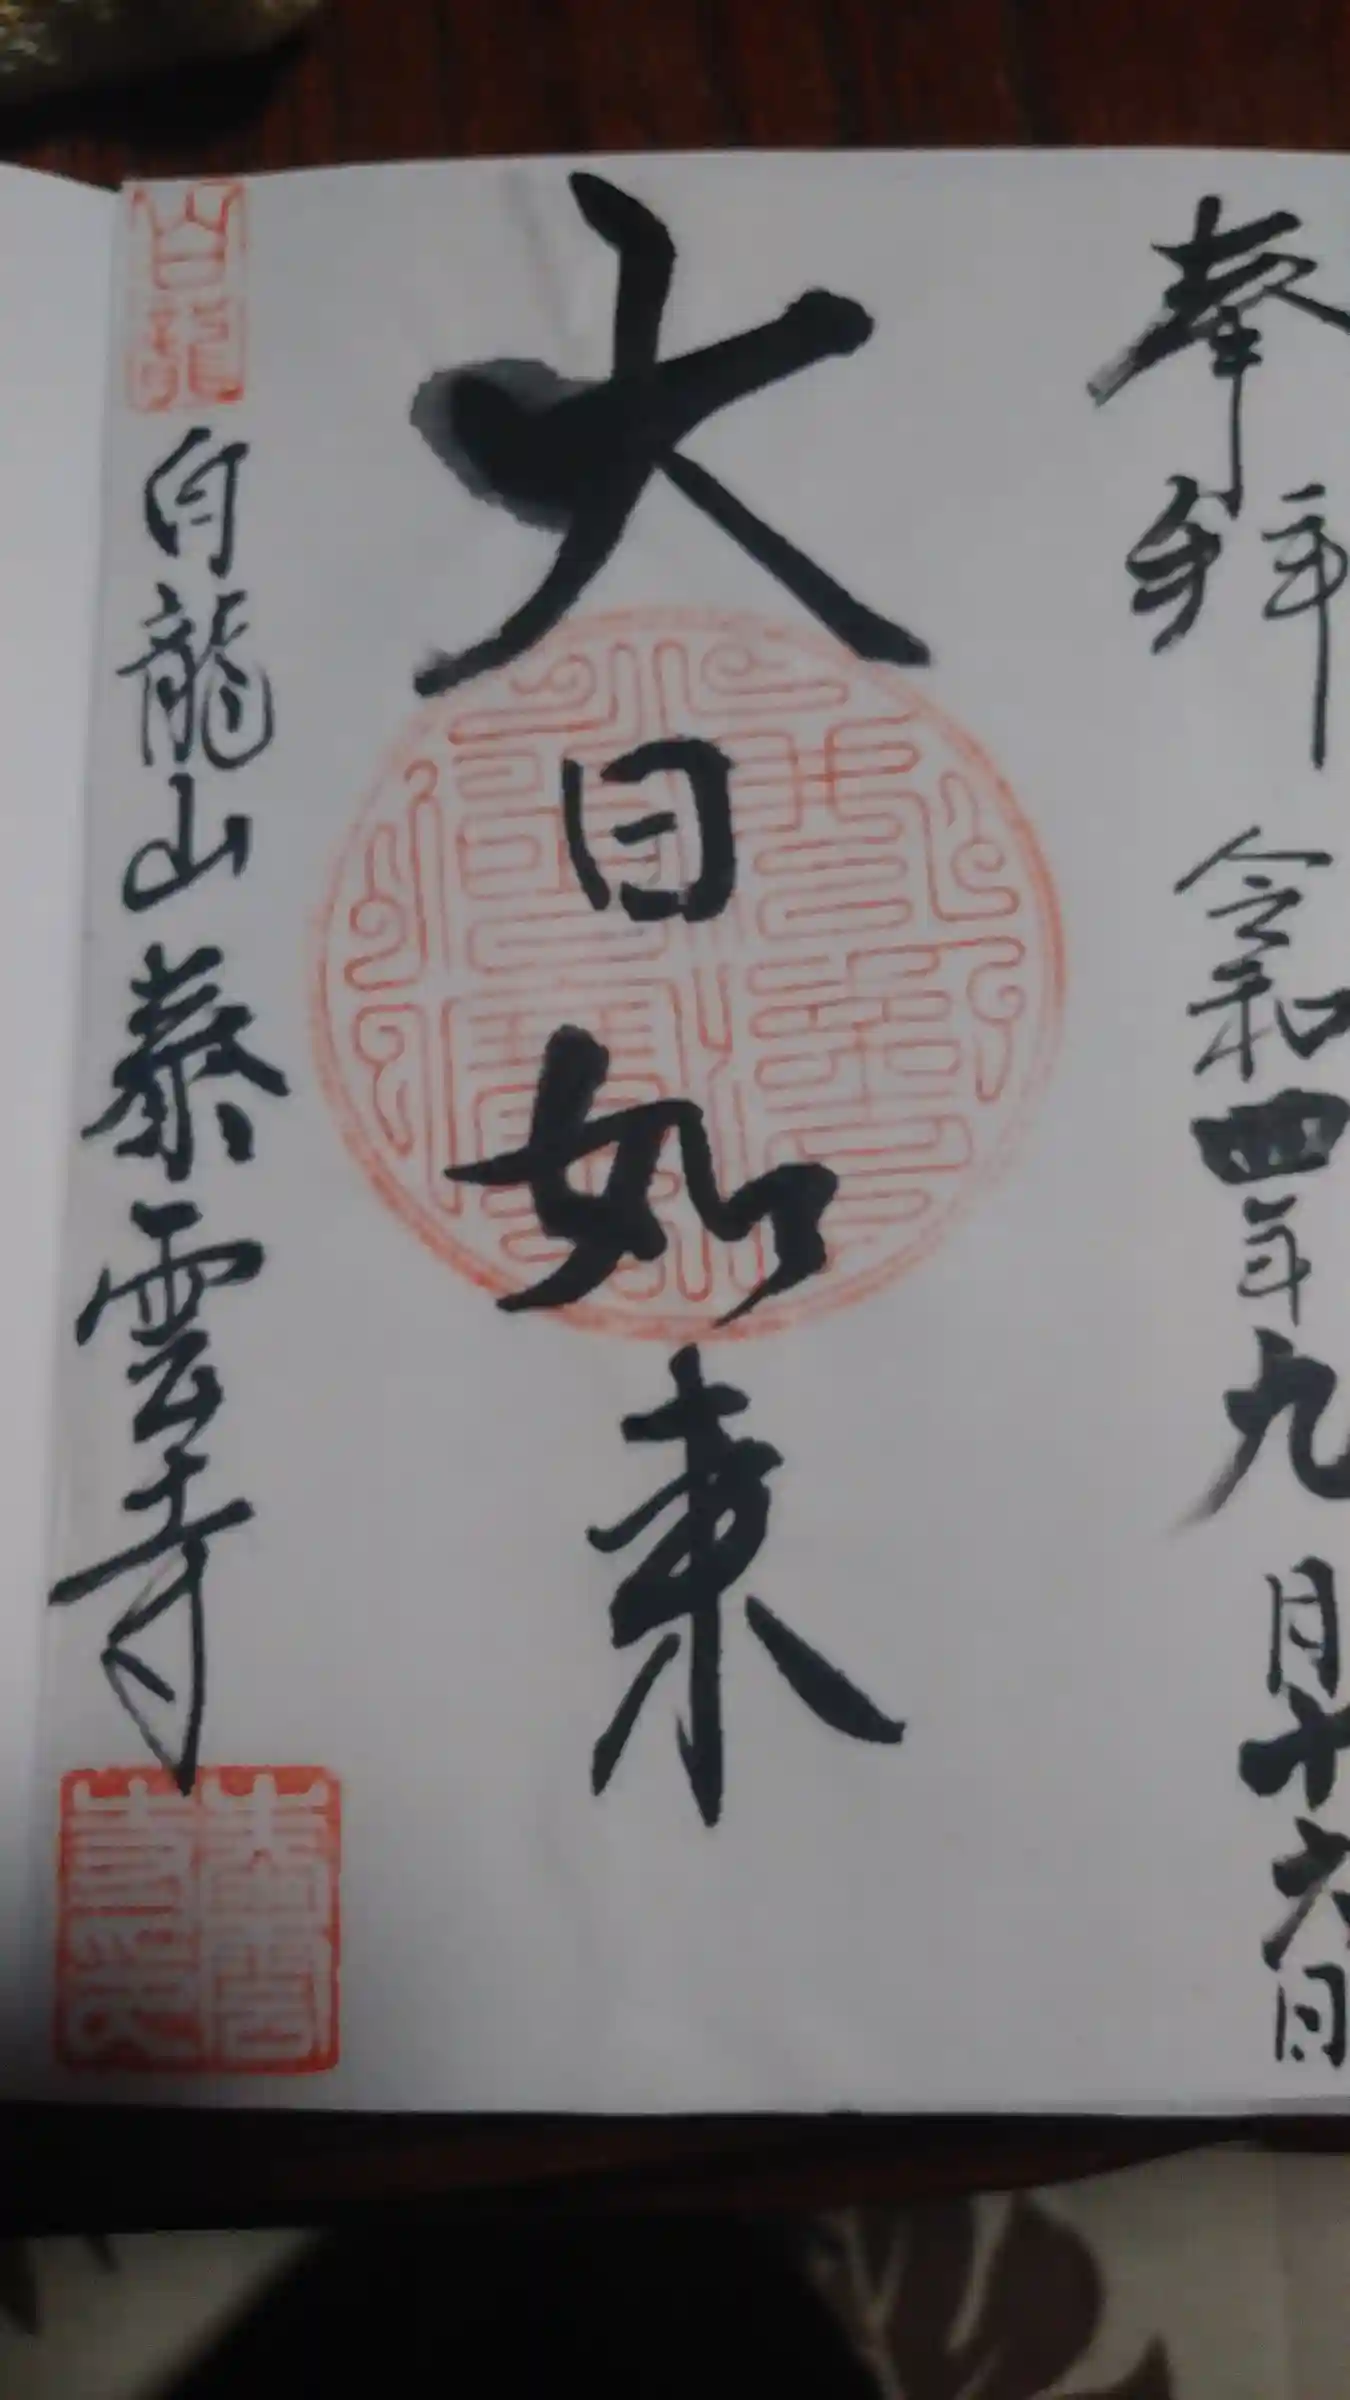 奉拝 令和四年九月十六日
大日如来
白龍
白龍山泰雲寺